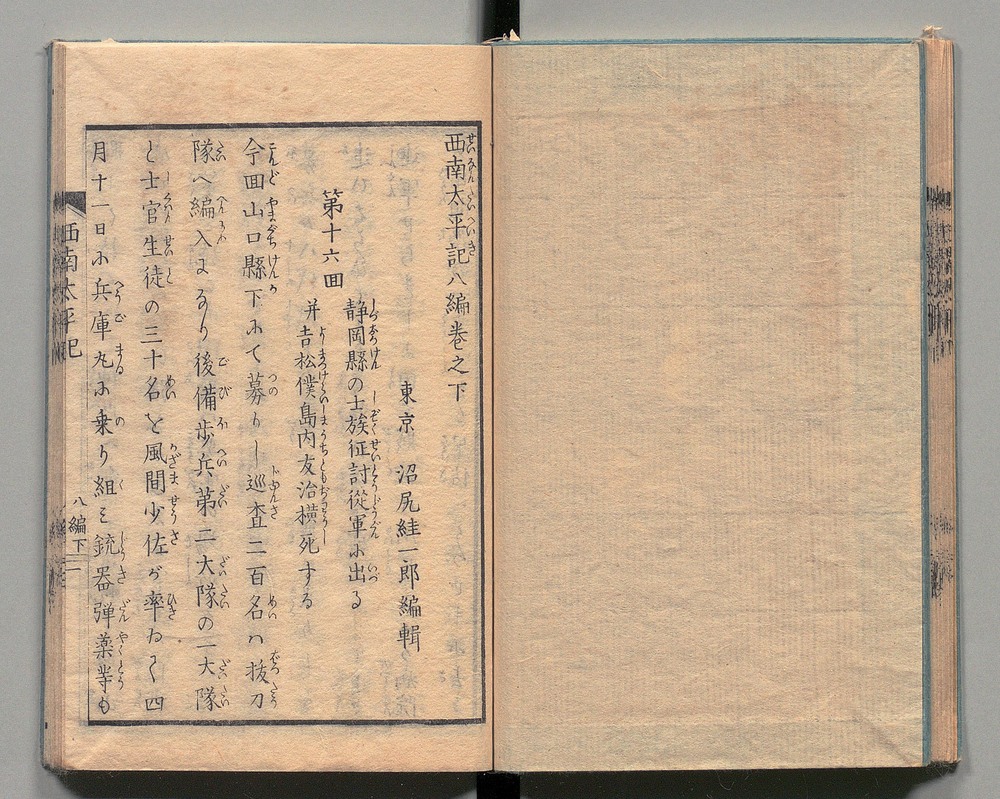 西南太平記八編巻之下
東京 沼尻絓一郎編輯
第十六回
静岡縣の士族征討從軍小出る
并吉松僕島内友治横死する
今回山口縣下小て募りし巡査二百名ハ抜刀
隊へ編入よなり後備歩兵第二大隊の一大隊
と士官生徒の三十名を風間少佐が率ゐて四
月十一日小兵庫丸小乗り組ミ銃器弾薬等も
西南太平記
八編下
一